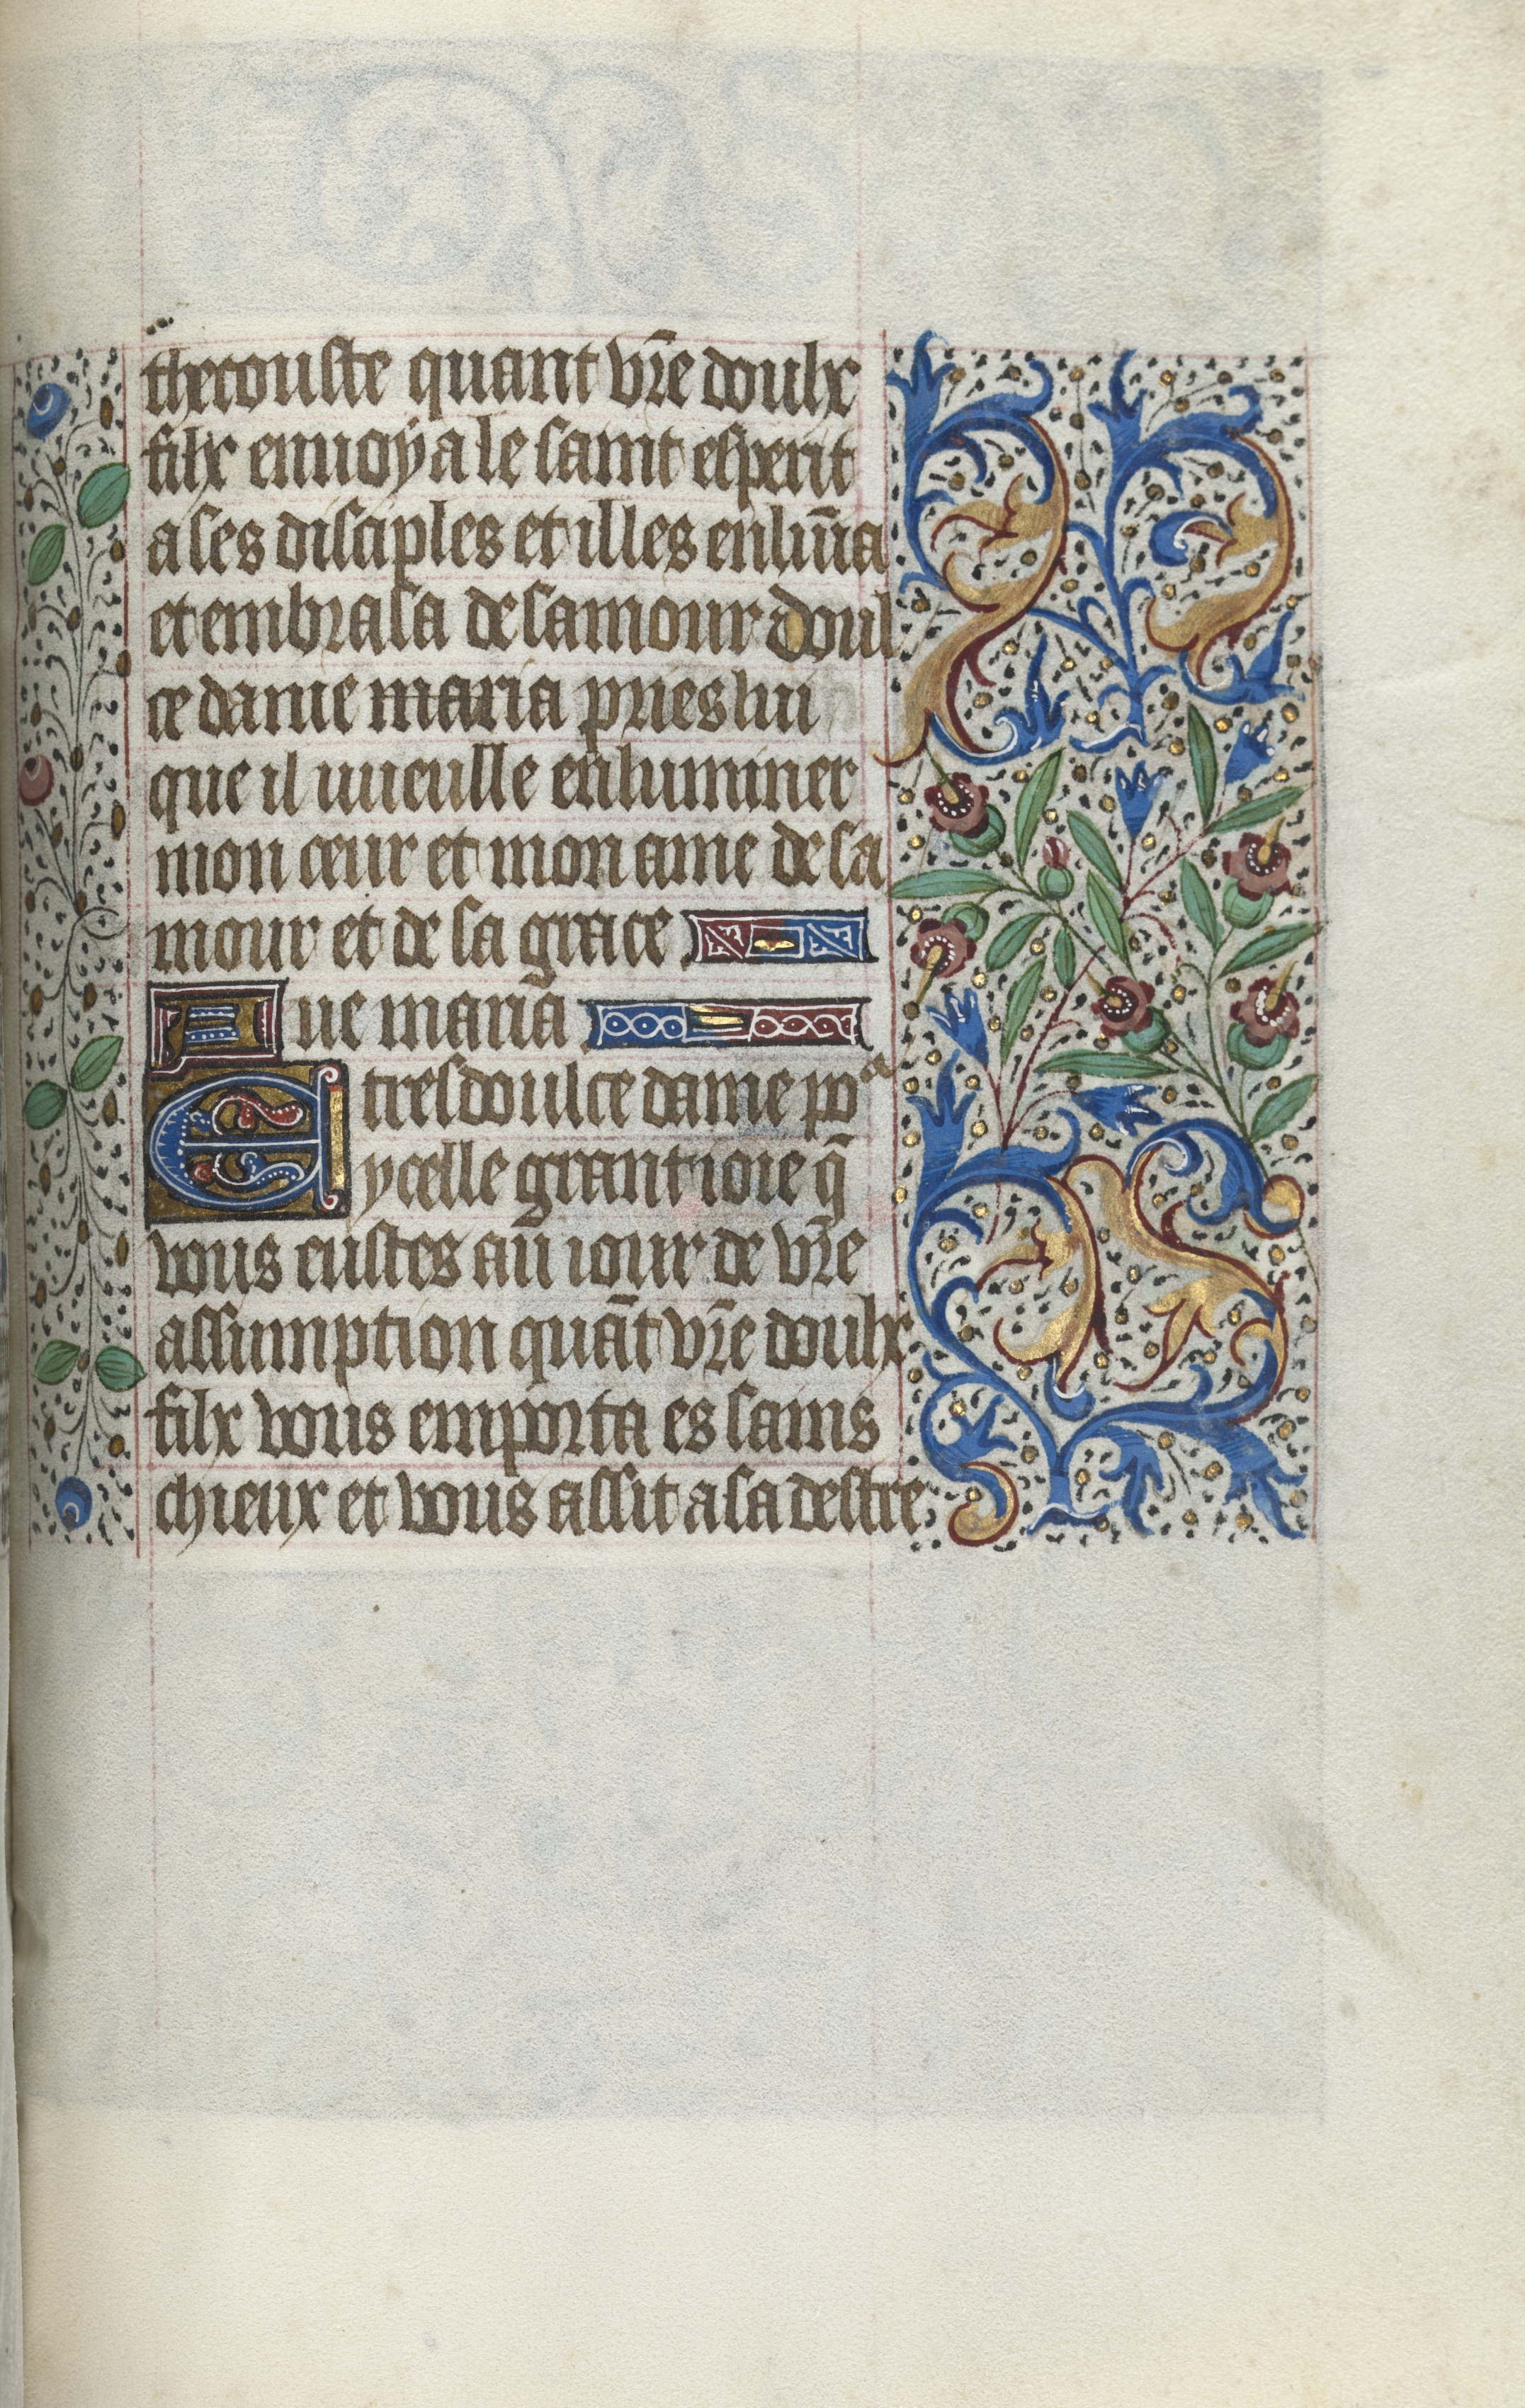 thecouste quant vr̄e doulx
filx enuoya le saint esperit
a ses disciples et illes enlūīa
et embrasa de samour doul
ce dame maria pries lui
que il uueulle enluminer
mon cœur et mon ame de sa
mour et de sa grace
Aue maria
E tresdoulce dame poᵃ
ycelle grant ioie q̄
vous eustes au iour de vr̄e
assumption quāt vr̄e doulx
filx vous emporta es sains
chieux et vous assit a sa destre